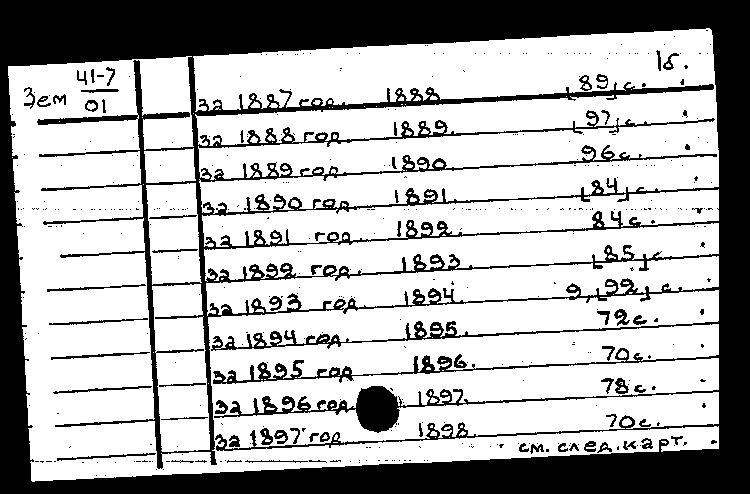 1б.
Зем 41-7
01
за 1887 год. 1888 [89] с.
за 1888 год 1889. [97] с.
за 1889 год. 1890. 96 с.
за 1890 год. 1891. [84] с.
за 1891 год 1892. 84 с.
за 1892 год. 1893. [85] с.
за 1893 год. 1894. 9, [92] с.
за 1894 год. 1895. 72 с.
за 1895 год 1896. 70 с.
за 1896 год. 1897. 78 с.
за 1897 год 1898. 70 с.
см. след. карт.